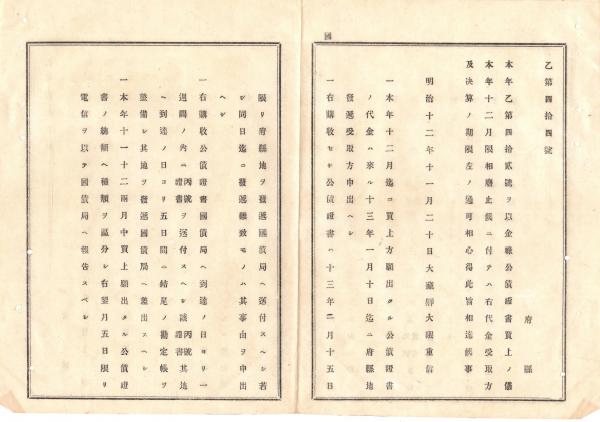 國
乙第四拾四號
府縣
本年乙第四拾貳號ヲ以金祿公債證書買上ノ儀
本年十二月限相廢止候ニ付テハ右代金受取方
及決算ノ期限左ノ通可相心得此旨相達候事
明治十二年十一月二十日大藏卿大隈重信
一本年十二月迄ニ買上方願出タル公債證書
ノ代金ハ來ル十三年一月十日迄ニ府縣地
發遞受取方申出ヘシ
一右購收セル公債證書ハ十三年二月十五日
限リ府縣地ヲ發遞國債局ヘ送付スヘシ若
シ同日迄ニ發遞難致モノハ其事由ヲ申出
ヘシ
一右購收公債證書國債局ヘ到達ノ日ヨリ一
週間ノ内ニ丙號證書ヲ送付スヘシ該丙號證書其地
ヘ到達ノ日ヨリ五日間ニ結尾ノ勘定帳ヲ
整備シ其地ヲ發遞國債局ヘ差出スヘシ
一本年十一十二兩月中買上願出タル公債證
書ノ總額ヘ種類ヲ區分シ右翌月五日限リ
電信ヲ以テ國債局ヘ報告スベシ